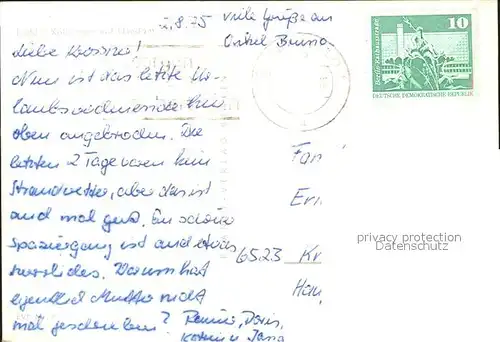 2.8.75 Viele Grüße an
Onkel Bruno
Liebe
Nun ist das letzte Ur-
laubswochenende hier
oben angebrochen. Die
letzten 2 Tage waren kein
Strandwetter, aber das ist
auch mal gut. Ein schöner
spaziergang ist auch etwas
herrliches. Warum hat
eigentlich Mutter nicht
mal geschrieben? Doris,
Katrin u. Jana
Fam
Eri
6523 Kr
Hau
10
DEUTSCHE DEMOKRATISCHE REPUBLIK
privacy protection
VEREINTES VERSANDANTIQUARIAT